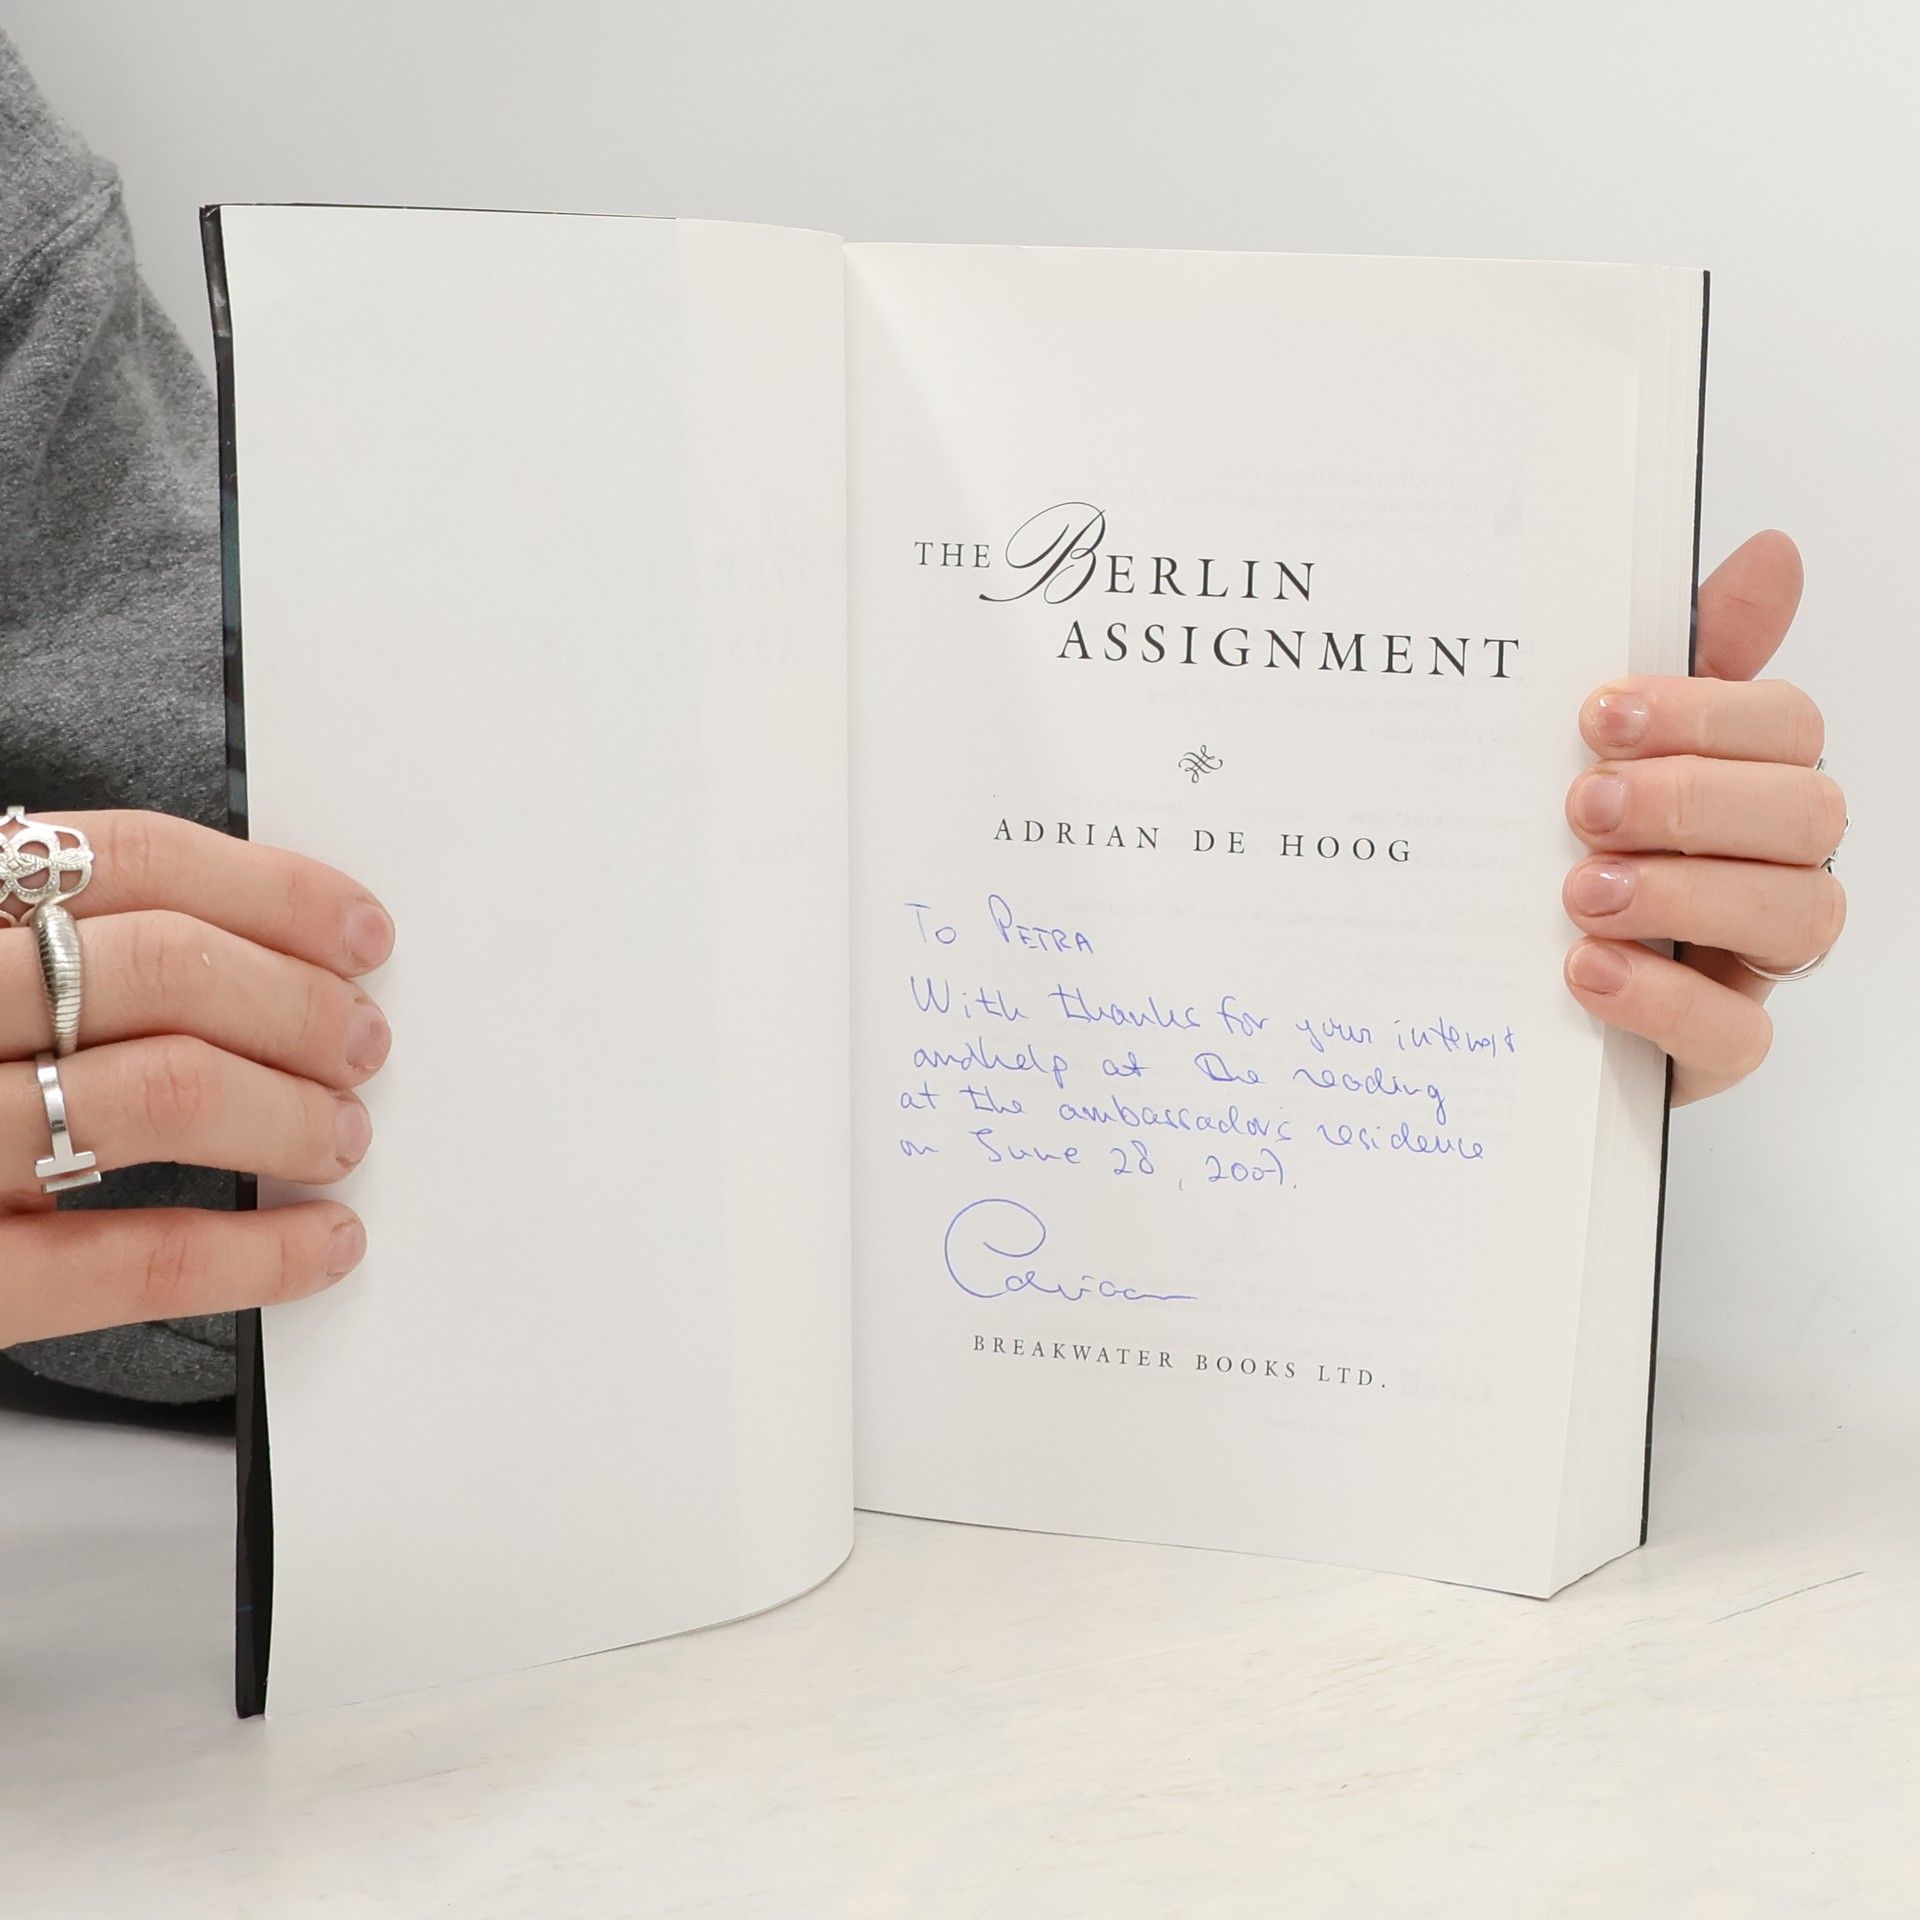 THE BERLIN
ASSIGNMENT
ADRIAN DE HOOG
To PETRA
With thanks for your interest
and help at the reading
at the ambassador's residence
on June 28, 2007.
Adriaan
BREAKWATER BOOKS LTD.